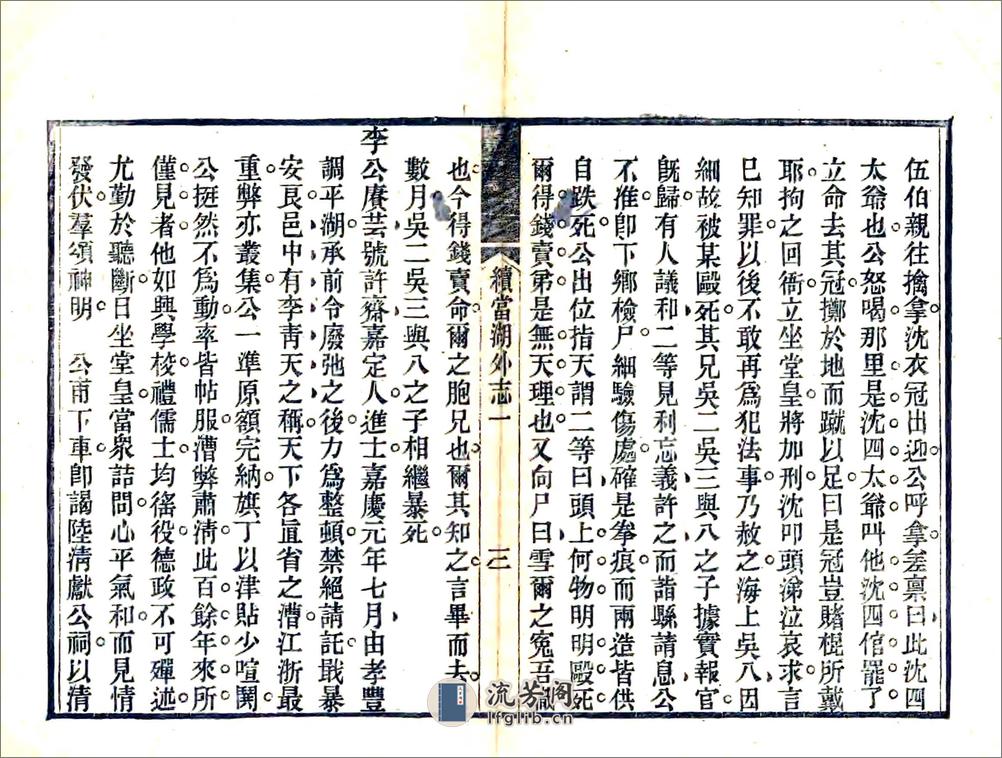 伍伯親往擒拿沈衣冠出迎公呼拿差禀曰此沈四
太爺也公怒喝那里是沈四太爺叫他沈四倌罷了
立命去其冠擲於地而蹴以足曰是冠豈賭棍所戴
耶拘之回衙立坐堂皇將加刑沈叩頭涕泣哀求言
已知罪以後不敢再為犯法事乃赦之海上吳八因
細故被某毆死其兄吳二吳三與八之子據實報官
旣歸有人議和二等見利忘義許之而詣縣請息公
不准卽下鄉檢尸細驗傷處確是拳痕而兩造皆供
自跌死公出位指天謂二等曰頭上何物明明毆死
爾得錢賣弟是無天理也又向尸曰雪爾之寃吾職
也今得錢賣命爾之胞兄也爾其知之言畢而去
數月吳二吳三與八之子相繼暴死
李公賡芸號許齋嘉定人進士嘉慶元年七月由孝豐
調平湖承前令廢弛之後力為整頓禁絕請託戢暴
安良邑中有李靑天之稱天下各直省之漕江浙最
重弊亦叢集公一準原額完納旗丁以津貼少喧鬨
公挺然不為動率皆帖服漕弊肅淸此百餘年來所
僅見者他如興學校禮儒士均徭役德政不可殫述
尤勤於聽斷日坐堂皇當衆詰問心平氣和而見情
發伏羣頌神明　公甫下車卽謁陸淸獻公祠以淸
續當湖外志一
三
流芳閣
lfglib.cn